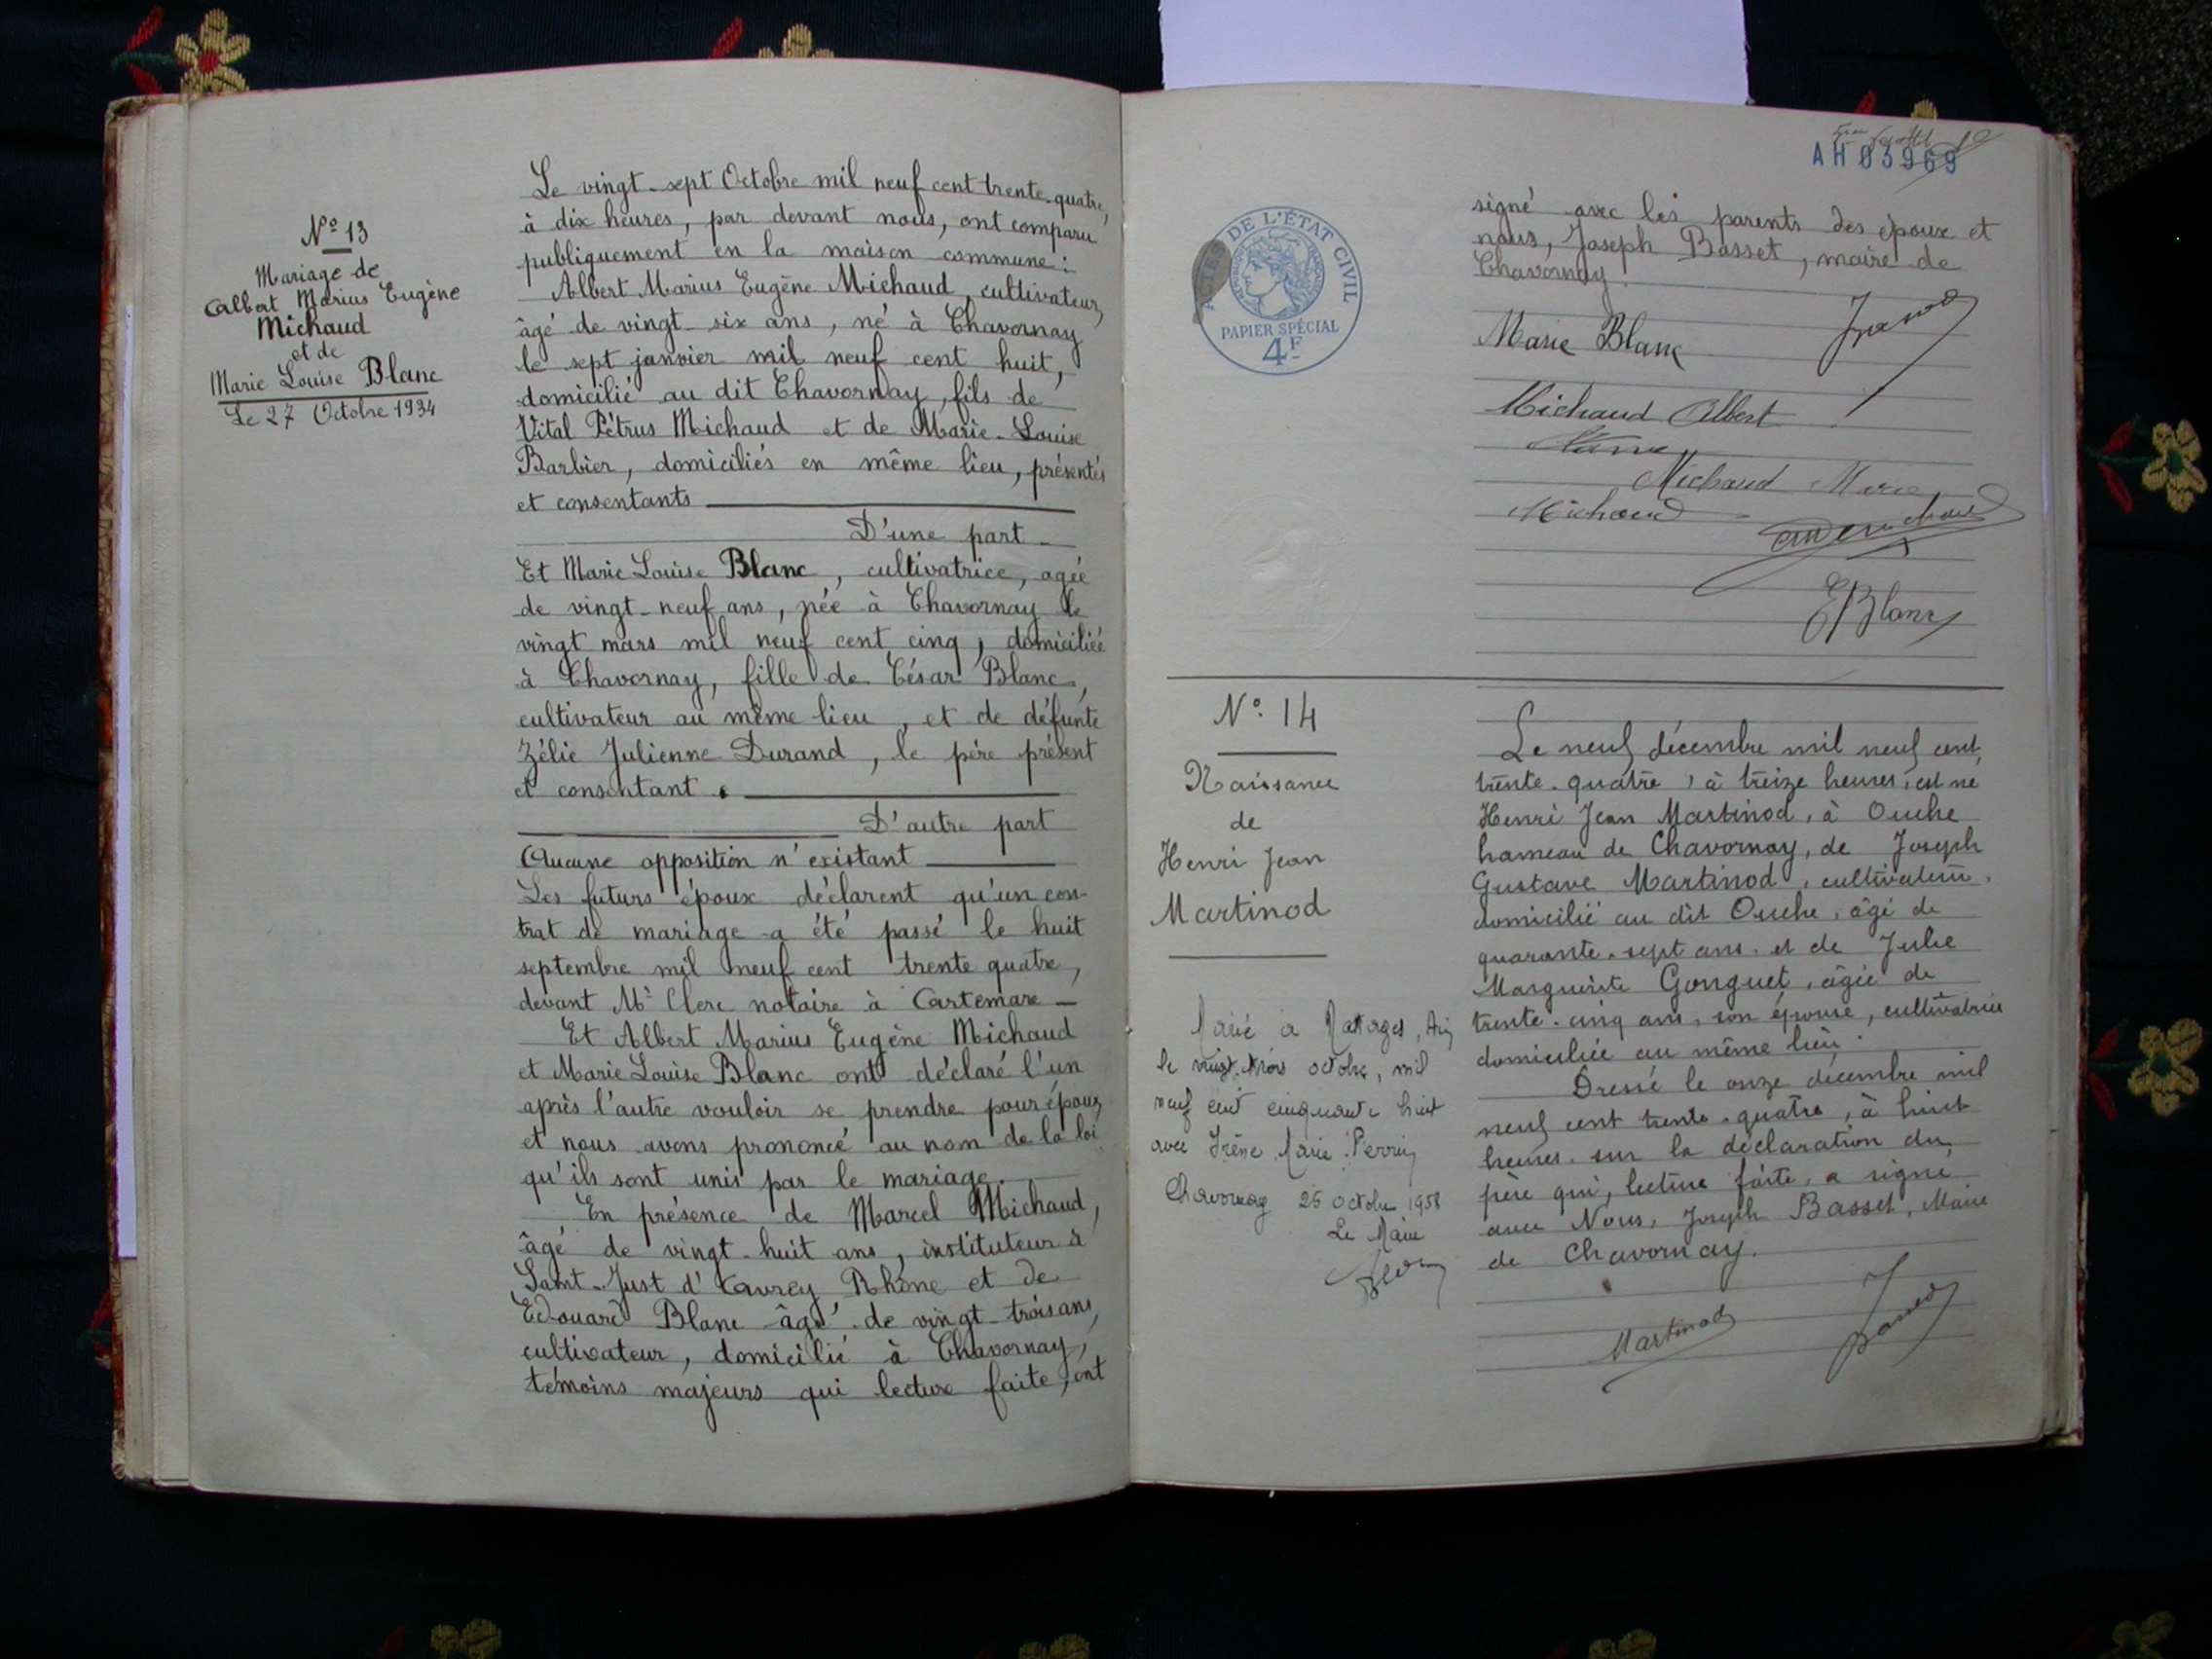 N° 13
Mariage de
Albert Marius Eugène
Michaud
et de
Marie Louise Blanc
Le 27 Octobre 1934
Le vingt-sept Octobre mil neuf cent trente-quatre,
à dix heures, par devant nous, ont comparu
publiquement en la maison commune :
Albert Marius Eugène Michaud, cultivateur,
âgé de vingt-six ans, né à Chavornay
le sept janvier mil neuf cent huit,
domicilié au dit Chavornay, fils de
Vital Pétrus Michaud et de Marie-Louise
Barbier, domiciliés en même lieu, présentés
et consentants
D'une part
Et Marie Louise Blanc, cultivatrice, agée
de vingt-neuf ans, née à Chavornay le
vingt mars mil neuf cent cinq, domiciliée
à Chavornay, fille de César Blanc,
cultivateur au même lieu, et de défunte
Zélie Julienne Durand, le père présent
et consentant.
D'autre part
Aucune opposition n'existant
Les futurs époux déclarent qu'un con-
trat de mariage a été passé le huit
septembre mil neuf cent trente quatre,
devant Me Clerc notaire à Artemare
Et Albert Marius Eugène Michaud
et Marie Louise Blanc ont déclaré l'un
après l'autre vouloir se prendre pour époux
et nous avons prononcé au nom de la loi
qu'ils sont unis par le mariage.
En présence de Marcel Michaud,
âgé de vingt-huit ans, instituteur à
Saint-Just d'Avray Rhône et de
Edouard Blanc âgé de vingt-trois ans,
cultivateur, domicilié à Chavornay,
témoins majeurs qui lecture faite, ont
AH 03969
ACTES DE L'ÉTAT CIVIL
PAPIER SPÉCIAL
4F
signé avec les parents des époux et
nous, Joseph Basset, maire de
Chavornay.
Marie Blanc
Michaud Albert
Michaud Marie
Michaud
E Blanc
N° 14
Naissance
de
Henri Jean
Martinod
Marié à Nattages, Ain
le vingt-trois octobre, mil
neuf cent cinquante huit
avec Irène Marie Perrin
Chavornay 25 octobre 1958
Le Maire
Le neuf décembre mil neuf cent
trente-quatre, à treize heures, est né
Henri Jean Martinod, à Ouche
hameau de Chavornay, de Joseph
Gustave Martinod, cultivateur,
domicilié au dit Ouche, âgé de
quarante-sept ans et de Julie
Marguerite Gonguet, âgée de
trente-cinq ans, son épouse, cultivatrice
domiciliée au même lieu.
Dressé le onze décembre mil
neuf cent trente-quatre, à huit
heures sur la déclaration du
père qui, lecture faite, a signé
avec Nous, Joseph Basset, Maire
de Chavornay.
Martinod